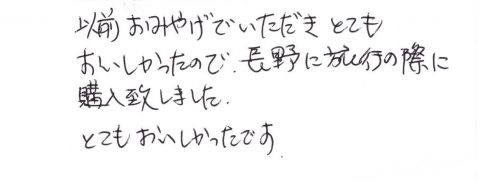 以前おみやげでいただき とても
おいしかったので、長野に旅行の際に
購入致しました.
とてもおいしかったです.